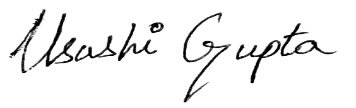 Usashi Gupta